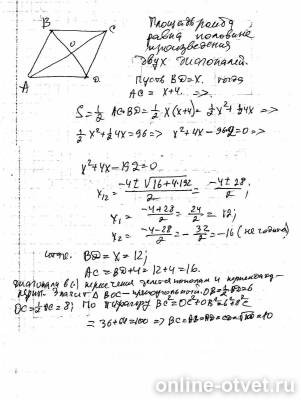 B
C
O
A
D
Площадь ромба
равна половине
произведения
двух диагоналей.
Пусть BD=X. тогда
AC = x+4. =>
S = 1/2 AC·BD = 1/2 X(x+4) = 1/2 x² + 1/2 4x =>
1/2 x² + 1/2 4x = 96 => x² + 4x - 96·2 = 0 =>
x² + 4x - 192 = 0
x₁₂ = (-4 ± √16+4·192)/2 = (-4 ± 28)/2;
x₁ = (-4+28)/2 = 24/2 = 12;
x₂ = (-4-28)/2 = -32/2 = -16 (не годится)
BD = X = 12;
AC = BD+4 = 12+4 = 16.
диагонали в (.) пересечения делятся пополам и перпенд
значит Δ BOC - прямоугольный. OB = 1/2 BD = 6
OC = 1/2 AC = 8; По Пифагору BC² = OC² + OB² = 6² + 8² =
= 36+64 = 100 => BC = = 10
online-otvet.ru